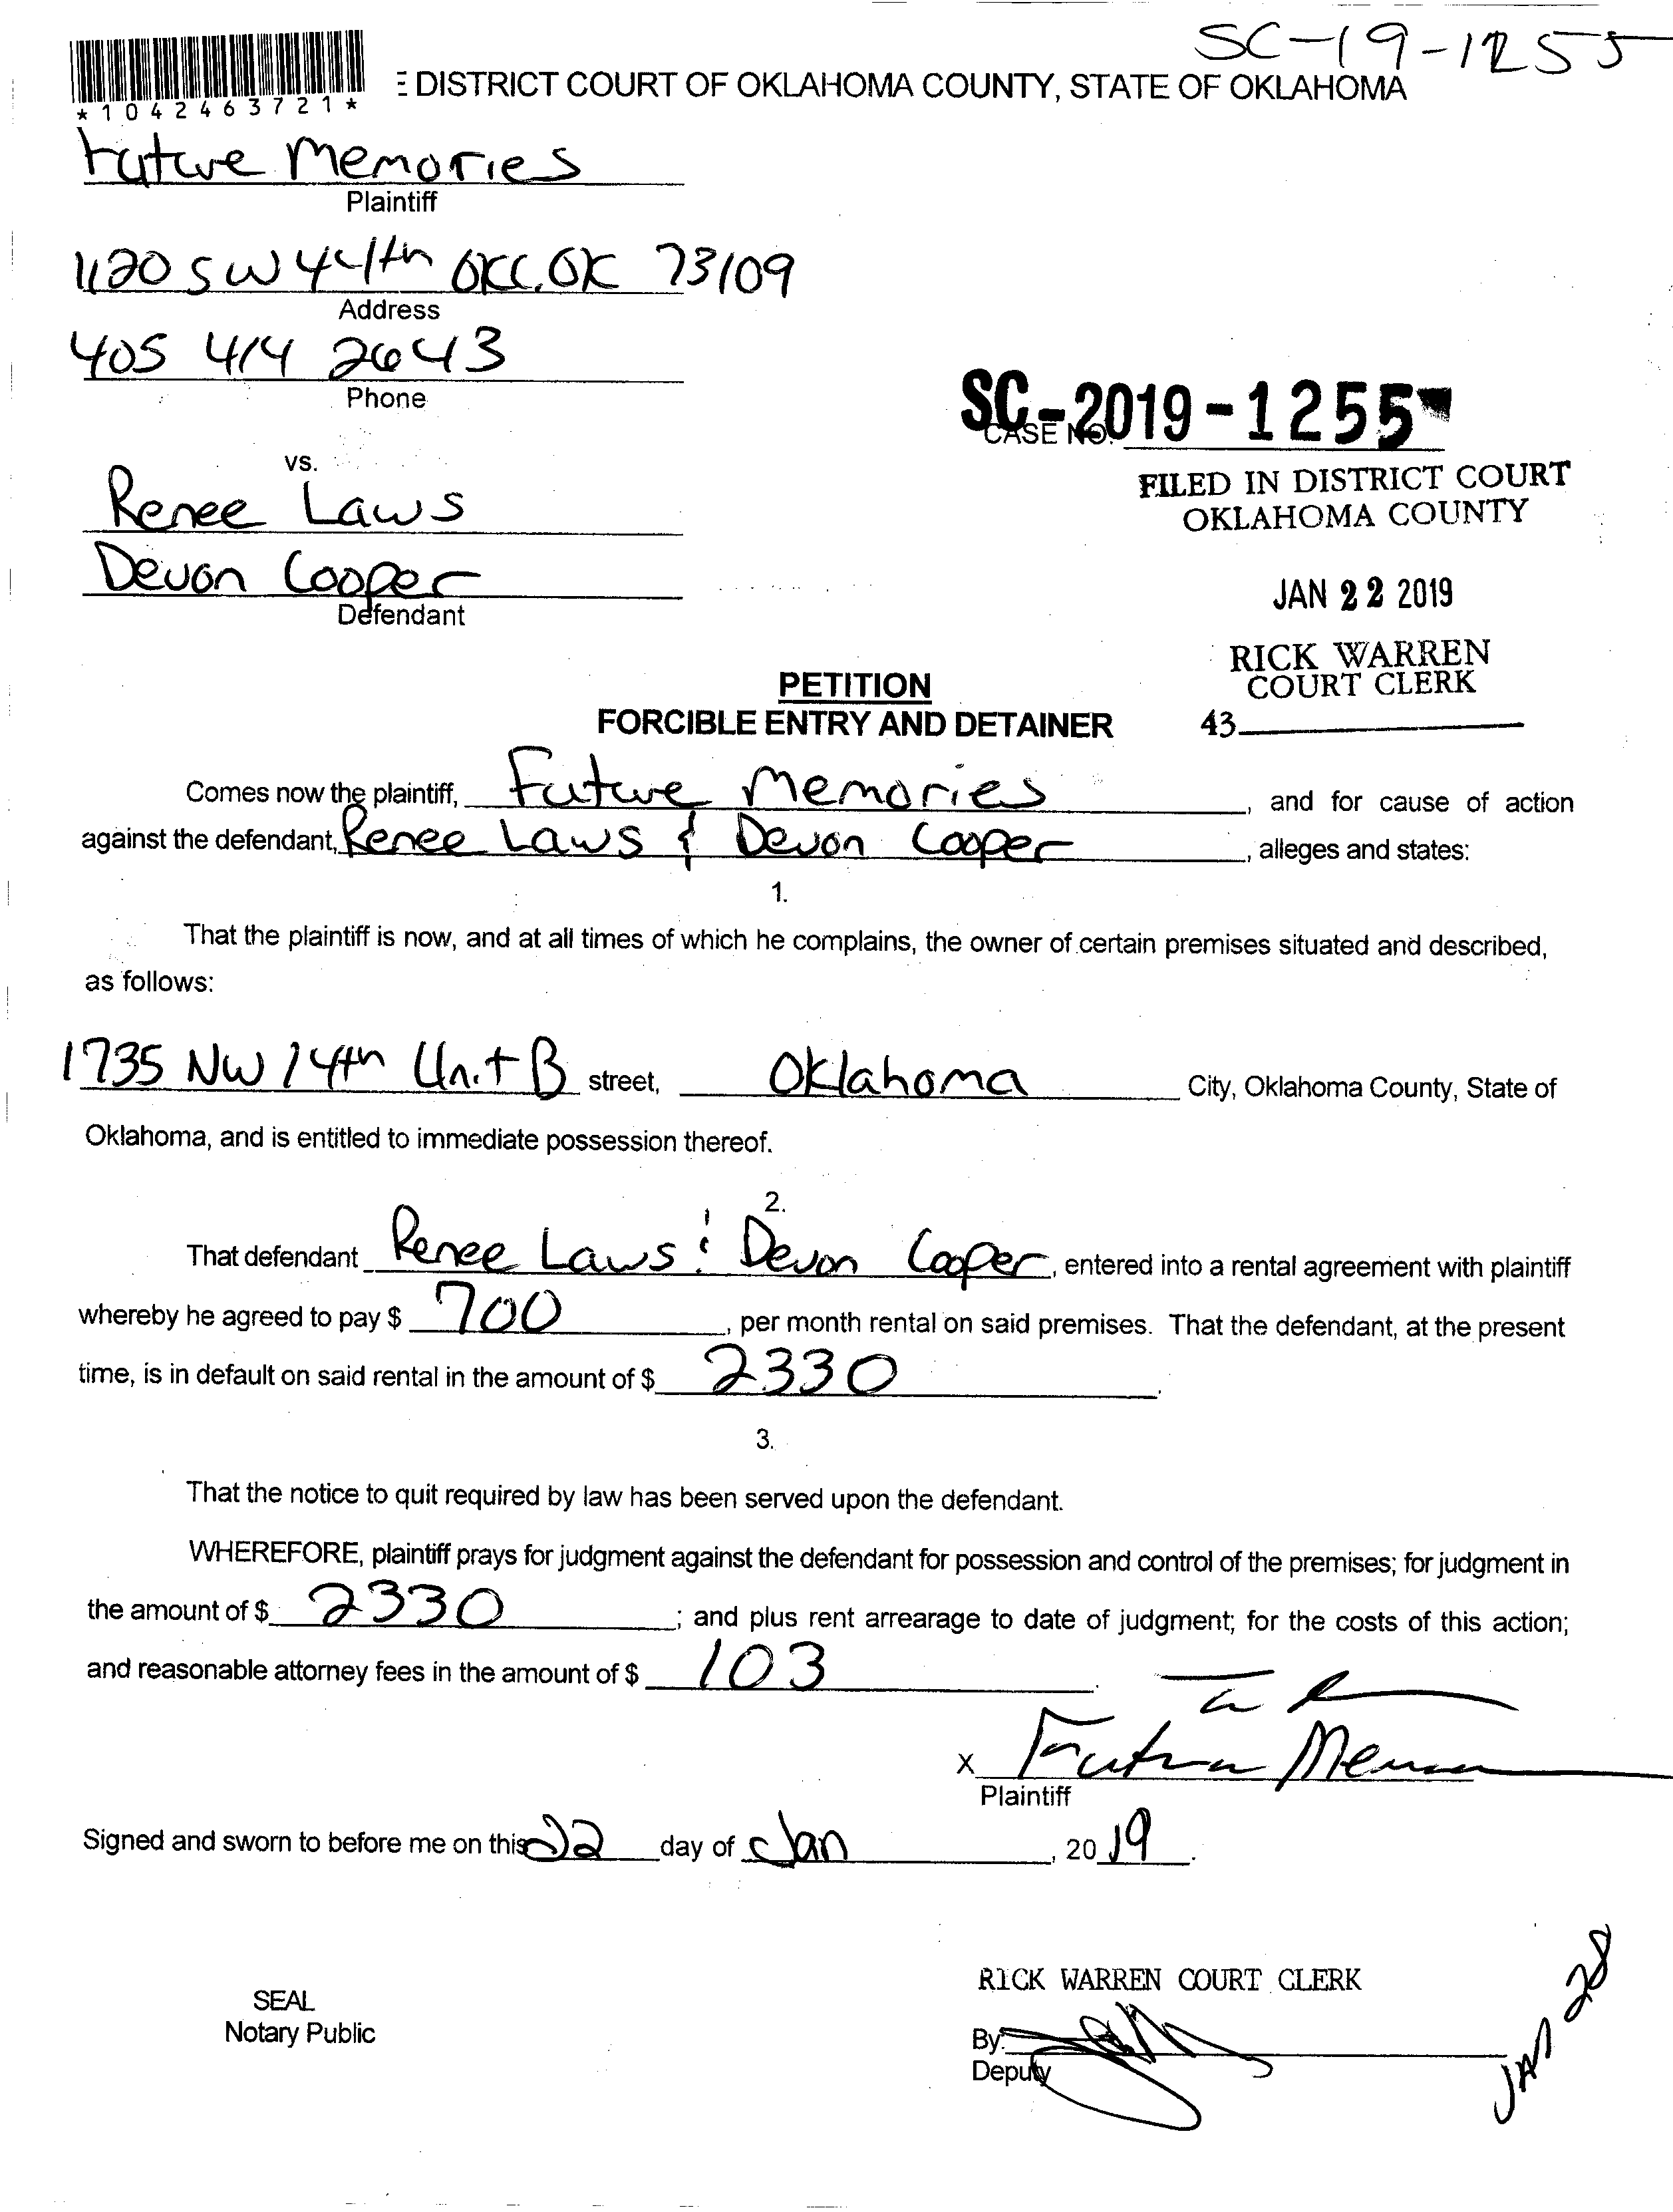 SC-19-1255
*1042463721*
E DISTRICT COURT OF OKLAHOMA COUNTY, STATE OF OKLAHOMA
Future Memories
Plaintiff
1120 SW 44th OKC, OK 73109
Address
405 414 2643
Phone
SC-2019-1255
CASE NO.
vs.
FILED IN DISTRICT COURT
OKLAHOMA COUNTY
Renee Laws
Devon Cooper
Defendant
JAN 22 2019
RICK WARREN
COURT CLERK
43
PETITION
FORCIBLE ENTRY AND DETAINER
Comes now the plaintiff, Future Memories, and for cause of action
against the defendant, Renee Laws & Devon Cooper, alleges and states:
1.
That the plaintiff is now, and at all times of which he complains, the owner of certain premises situated and described,
as follows:
1735 NW 14th Unit B street, Oklahoma City, Oklahoma County, State of
Oklahoma, and is entitled to immediate possession thereof.
2.
That defendant Renee Laws & Devon Cooper, entered into a rental agreement with plaintiff
whereby he agreed to pay $ 700, per month rental on said premises. That the defendant, at the present
time, is in default on said rental in the amount of $ 2330.
3.
That the notice to quit required by law has been served upon the defendant.
WHEREFORE, plaintiff prays for judgment against the defendant for possession and control of the premises; for judgment in
the amount of $ 2330; and plus rent arrearage to date of judgment; for the costs of this action;
and reasonable attorney fees in the amount of $ 103.
X Future Mem
Plaintiff
Signed and sworn to before me on this 22 day of Jan, 2019.
SEAL
Notary Public
RICK WARREN COURT CLERK
By:
Deputy
JAN 28